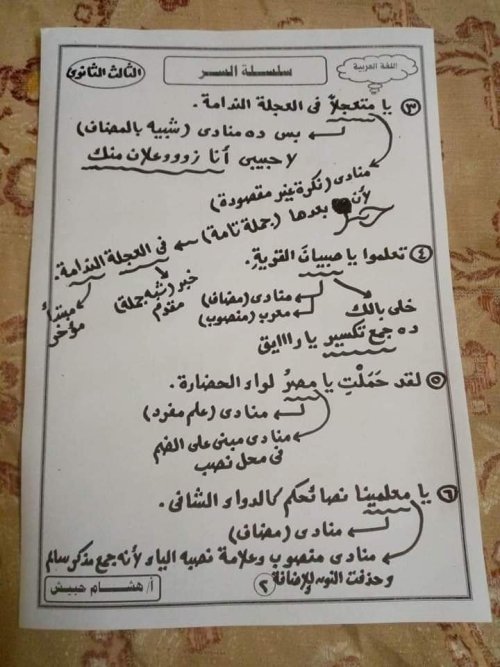 اللغة العربية
سلسلة السر
الثالث الثانوى
٣ يا متعجلاً فى العجلة الندامة.
بس ده منادى (شبيه بالمضاف)
لا حبيبى أنا زوووعلان منك
منادى (نكرة غير مقصودة)
لأن بعدها (جملة تامة) ← فى العجلة الندامة.
خبر (شبه جملة) مقدم
مبتدأ مؤخر
٤ تعلموا يا صبيانَ القريةِ.
منادى (مضاف)
معرب (منصوب)
خلى بالك
ده جمع تكسير يا رااايق
٥ لقد حَمَلْتِ يا مصرُ لواء الحضارة.
منادى (علم مفرد)
منادى مبنى على الضم
فى محل نصب
٦ يا معلمينا نصائحكم كالدواء الشافى.
منادى (مضاف)
منادى منصوب وعلامة نصبه الياء لأنه جمع مذكر سالم
وحذفت النون للإضافة
٢
أ/ هشام حبيش